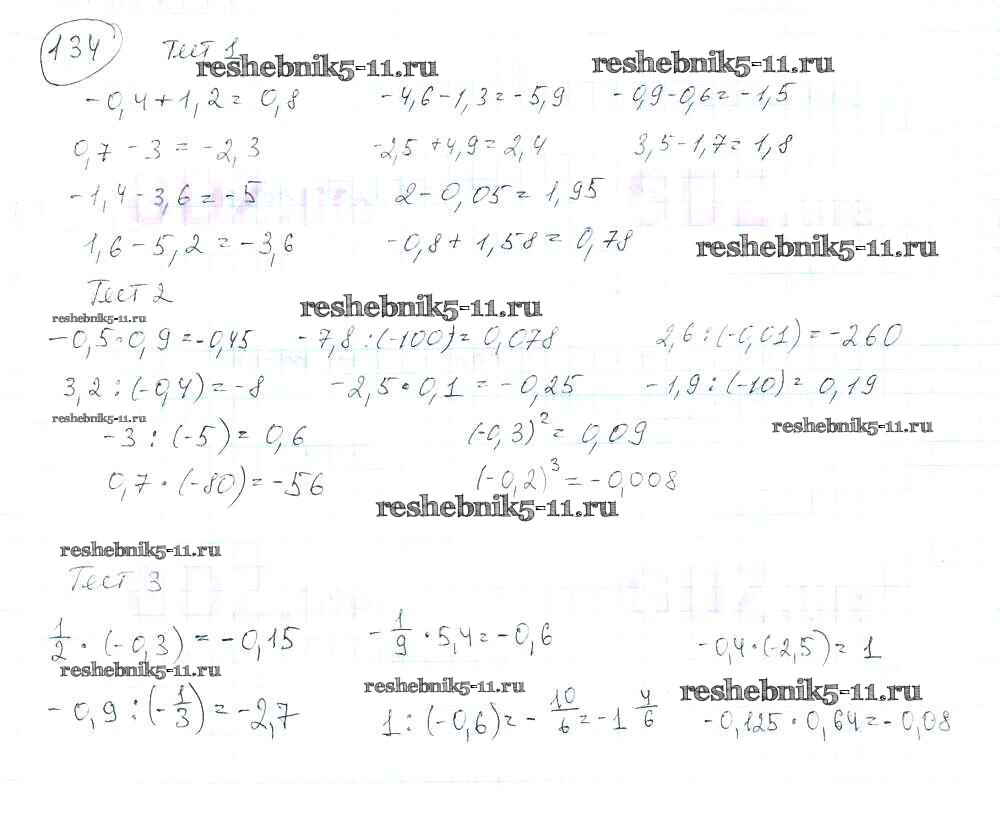 134 Тест 1
reshebnik5-11.ru reshebnik5-11.ru
-0,4+1,2=0,8 -4,6-1,3=-5,9 -0,9-0,6=-1,5
0,7-3=-2,3 -2,5+4,9=2,4 3,5-1,7=1,8
-1,4-3,6=-5 2-0,05=1,95
1,6-5,2=-3,6 -0,8+1,58=0,78 reshebnik5-11.ru
Тест 2 reshebnik5-11.ru
reshebnik5-11.ru
-0,5·0,9=-0,45 -7,8:(-100)=0,078 2,6:(-0,01)=-260
3,2:(-0,4)=-8 -2,5·0,1=-0,25 -1,9:(-10)=0,19
reshebnik5-11.ru reshebnik5-11.ru
-3:(-5)=0,6 (-0,3)²=0,09
0,7·(-80)=-56 (-0,2)³=-0,008
reshebnik5-11.ru
reshebnik5-11.ru
Тест 3
1/2·(-0,3)=-0,15 -1/9·5,4=-0,6 -0,4·(-2,5)=1
reshebnik5-11.ru reshebnik5-11.ru reshebnik5-11.ru
-0,9:(-1/3)=-2,7 1:(-0,6)=-10/6=-1 4/6 -0,125·0,64=-0,08